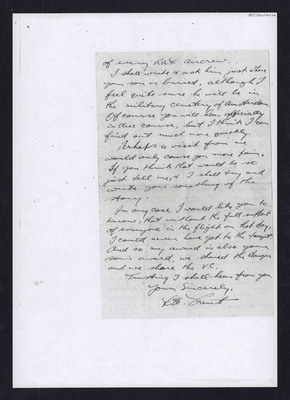 of every RAF aircrew.
I shall write & ask him just where
your son is buried, although I
feel quite sure he will be in
the military cemetery at Amsterdam.
Of course you will hear, officially
in due course, but I think I can
find out much more quickly.
Perhaps a visit from me
would only cause you more pain,
If you think that would be so
just tell me, & I shall try and
write you something of the
story.
In any case I would like you to
know, that without the full support
of everyone in the flight on that day,
I could never have got to the target.
And so my award is also your
son's award, we shared the danger
and we share the V.C.
Trusting I shall hear from you.
Yours Sincerely,